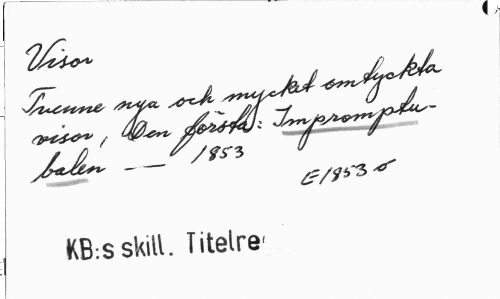 Visor
Tvenne nya och mycket omtyckta
visor, Den första: Impromptu-
balen — — 1853
E1853 σ
KB:s skill. Titelre